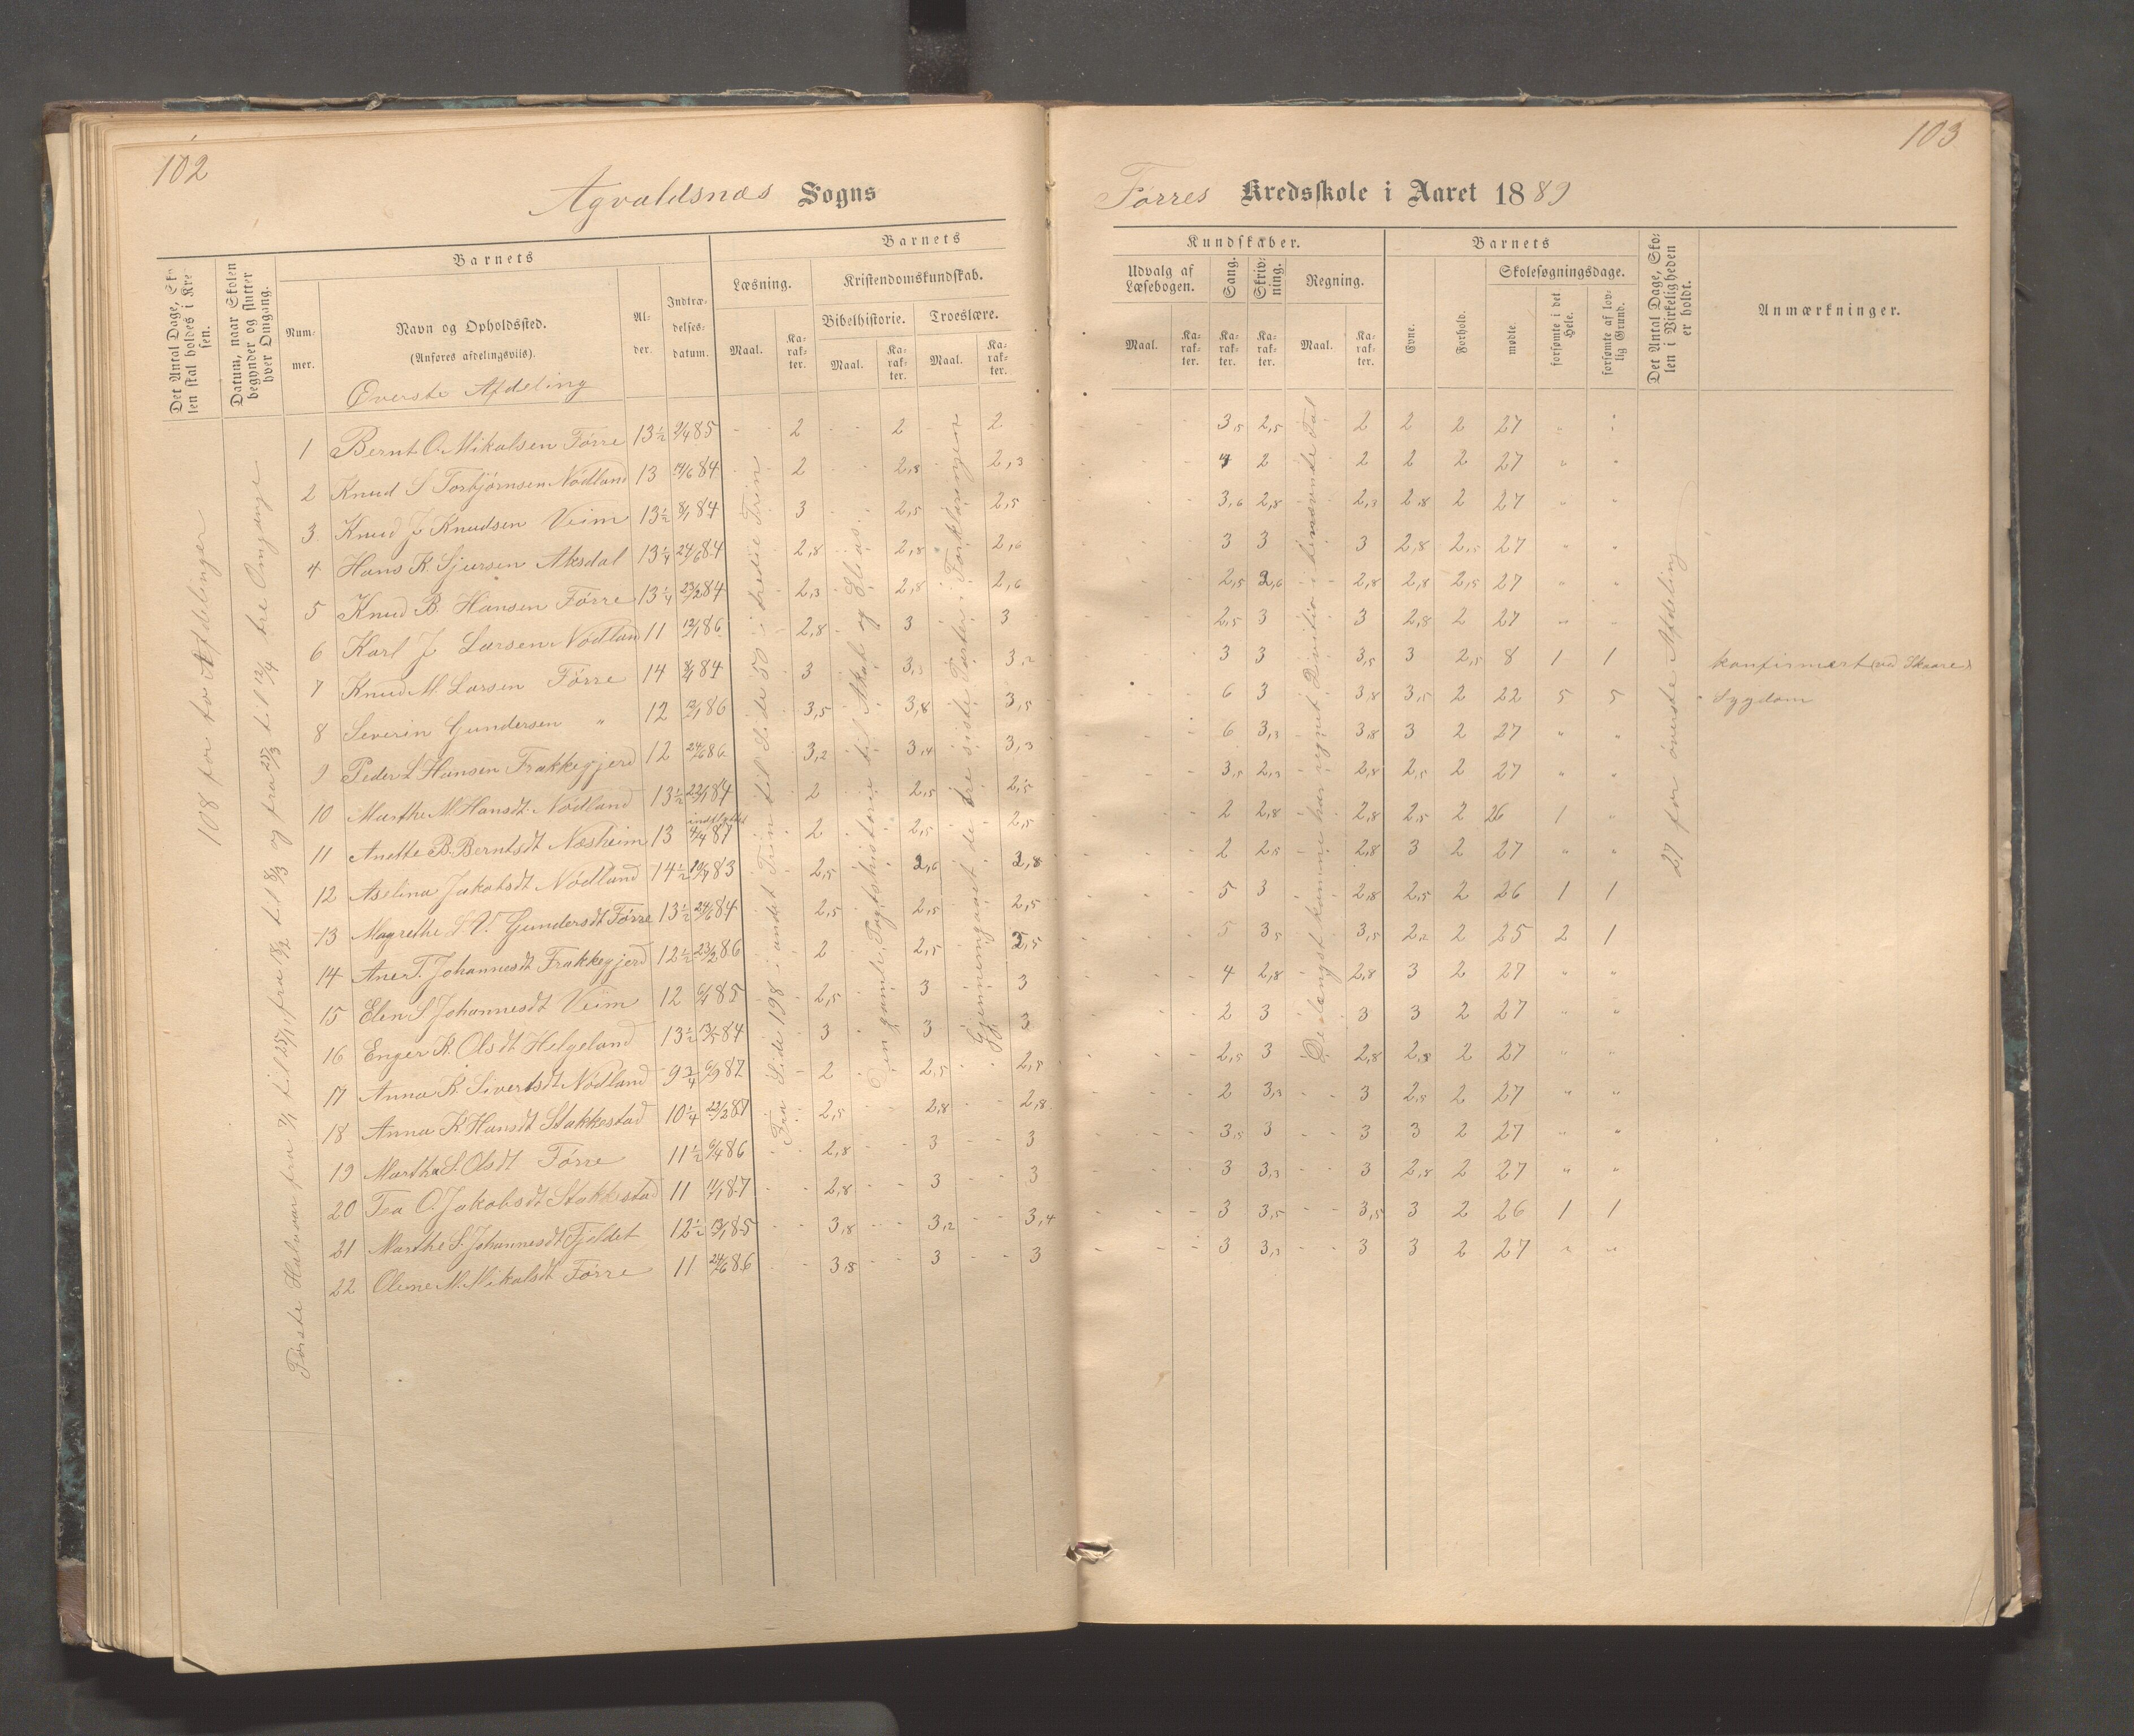 102
Agvaldsnæs Sogns
Barnets
Barnets
Det Antal Dage, Sko-
len skal holdes i Kre-
sen.
Datum, naar Skolen
begynder og slutter
hver Omgang.
Num-
mer.
Navn og Opholdssted.
(Anføres afdelingsviis).
Al-
der.
Indtræ-
delses-
datum.
Læsning.
Kristendomskundskab.
Bibelhistorie. Troeslære.
Maal. Ka-
rak-
ter. Maal. Ka-
rak-
ter. Maal. Ka-
rak-
ter.
Øverste Afdeling
108 for to Afdelinger
Første Halvaar fra 7/1 til 25/1, fra 18/2 til 8/3 og fra 27/3 til 12/4 tre Omgange
Fra Side 198 i andet Trin til Side 50 i tredie Trin
Den gamle Pagtshistorie til Akab og Elias.
Gjennemgaaet de tre sidste Parter i Forklaringen
1 Bernt O. Mikalsen Førre 13½ 2/4 85 - 2 - - 2 - 2
2 Knud S Torbjørnsen Nødland 13 14/6 84 - 2 - - 2,8 - 2,3
3 Knud J Knudsen Veim 13½ 8/1 84 3 2,5 2,5
4 Hans K. Sjursen Aksdal 13¼ 24/6 84 2,8 2,8 2,6
5 Knud B. Hansen Førre 13¼ 23/2 84 2,3 2,8 2,6
6 Karl J Larsen Nødland 11 12/1 86 2,8 3 3
7 Knud M. Larsen Førre 14 8/1 84 3 3,2
8 Severin Gundersen " 12 12/1 86 3,5 3,8 3,5
9 Peder L Hansen Frakkegjerd 12 24/6 86 3,2 3,4 3,3
10 Marthe M. Hansdt. Nødland 13½ 23/1 84 2 2,5 2,5
11 Anette B. Berntsdt Næsheim 13 indflyttet 4/4 87 2 2,5 2,5
12 Aselina Jakobsdt Nødland 14½ 83 2,5 2,6 2,8
13 Magrethe S. V. Gundersdt Førre 13½ 24/6 84 2,5 2,5 2,5
14 Ane T. Johannesdt Frakkegjerd 12½ 23/2 86 2 2,5 2,5
15 Elen S Johannesdt Veim 12 6/1 85 2,5 3 3
16 Enger K. Olsdt Helgeland 13½ 13/5 84 3 3 3
17 Anna K. Sivertsdt Nødland 9¾ 6/9 87 2 2,5 2,5
18 Anna K Hansdt Stakkestad 10¼ 22/2 87 2,5 2,8 2,8
19 Martha S. Olsdt Førre 11½ 6/4 86 2,8 3 3
20 Tea O. Jakobsdt Stakkestad 11 11/1 87 2,8 3 3
21 Marthe S. Johannesdt Fjeldet 12½ 13/1 85 3,8 3,2 3,4
22 Oline M. Mikalsdt Førre 11 24/6 86 3,8 3 3
103
Førres Kredsskole i Aaret 1889
Kundskaber.
Barnets
Udvalg af
Læsebogen.
Sang.
Skriv-
ning.
Regning.
Skolesøgningsdage.
Maal. Ka-
rak-
ter. Ka-
rak-
ter. Ka-
rak-
ter. Maal. Ka-
rak-
ter.
Evne.
Forhold.
mødte.
forsømte i det
Hele.
forsømte af lov-
lig Grund.
Det Antal Dage, Sko-
len i Virkeligheden
er holdt.
Anmærkninger.
De længst komne har regnet Division i benævnte Tal
27 for øverste Afdeling
3,5 2,5 2 2 2 27 " "
4 2 2 2 2 27 " "
3,6 2,8 2,3 2,8 2 27 " "
3 3 3 2,8 2,5 27 " "
2,5 2,6 2,8 2,8 2,5 27 " "
2,5 3 3 2,8 2 27 " "
3 3 3,5 3 2,5 8 1 1 konfirmert (ved Skaare)
6 3 3,8 3,5 2 22 5 5 Sygdom
6 3,3 3,8 3 2 27 " "
3,5 2,3 2,8 2,5 2 27 " "
2 2,8 2,8 2,5 2 26 1 "
2 2,5 2,8 3 2 27 " "
5 3 2,8 2,5 2 26 1 1
5 3,5 3,5 2,2 2 25 2 1
4 2,8 2,8 3 2 27 " "
2 3 3 3 2 27 " "
2,5 3 2,8 2,8 2 27 " "
2 3,3 3 2,5 2 27 " "
3,5 3 3 3 2 27 " "
3 3,3 3 2,8 2 27 " "
3 3,5 3,5 3 2 26 1 1
3 3,3 3 3 2 27 " "